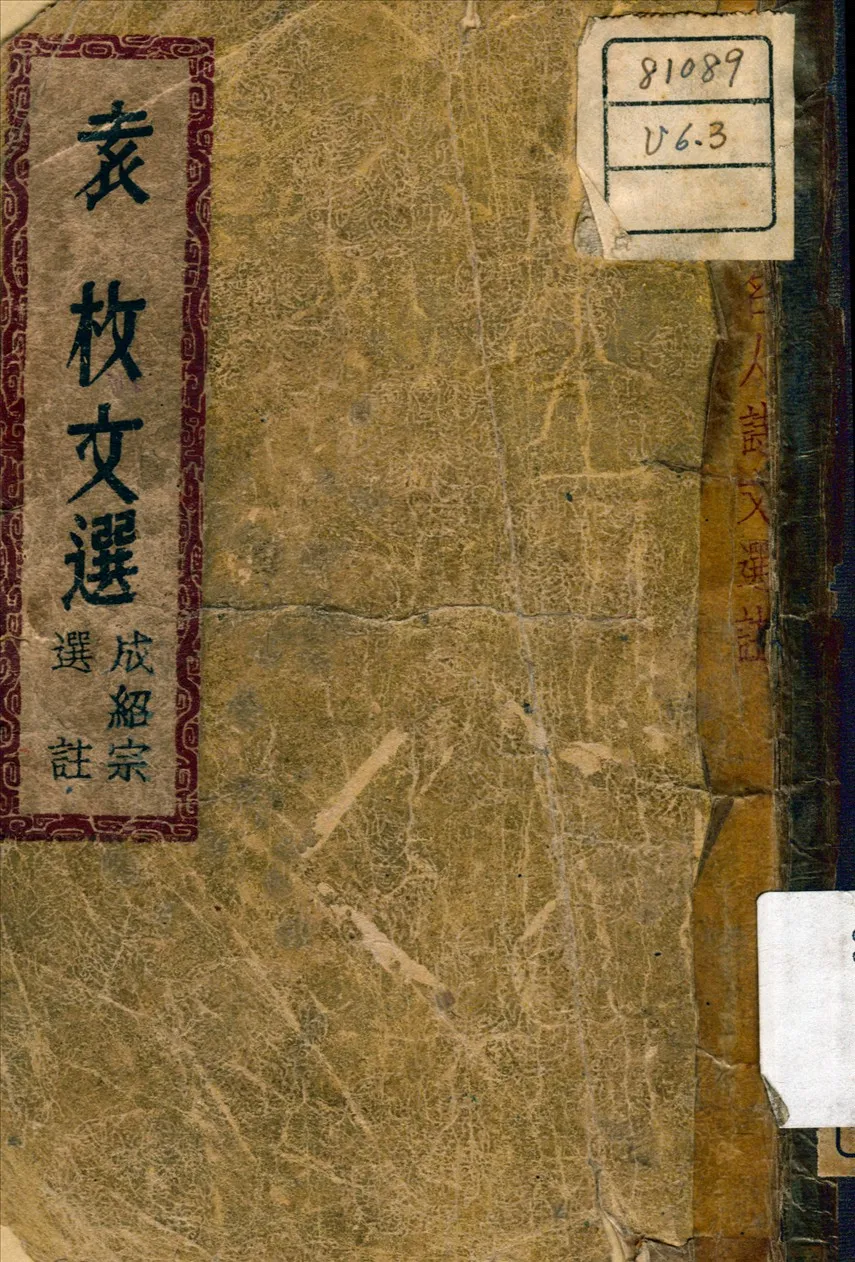 81089
V6.3
名人詩文選註
袁枚文選
成紹宗
選註